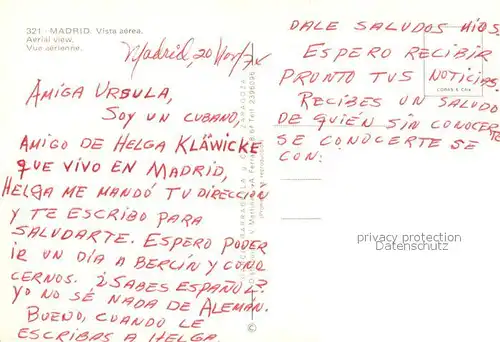 321 - MADRID. Vista aérea.
Aerial view.
Vue aérienne.
Madrid, 20
AMIGA URSULA,
SOY UN CUBANO,
AMIGO DE HELGA KLÄWICKE
QUE VIVO EN MADRID,
HELGA ME MANDÓ TU DIRECCION
Y TE ESCRIBO PARA
SALUDARTE. ESPERO PODER
IR UN DIA A BERLIN Y CONO
CERNOS. ¿SABES ESPAÑOL?
YO NO SÉ NADA DE ALEMAN.
BUENO, CUANDO LE
ESCRIBAS A HELGA.
DALE SALUDOS MIOS.
ESPERO RECIBIR
PRONTO TUS NOTICIAS.
RECIBES UN SALUDO
DE QUIÉN SIN CONOCERTE
SE CONOCERTE SE
CON:
privacy protection
Datenschutz